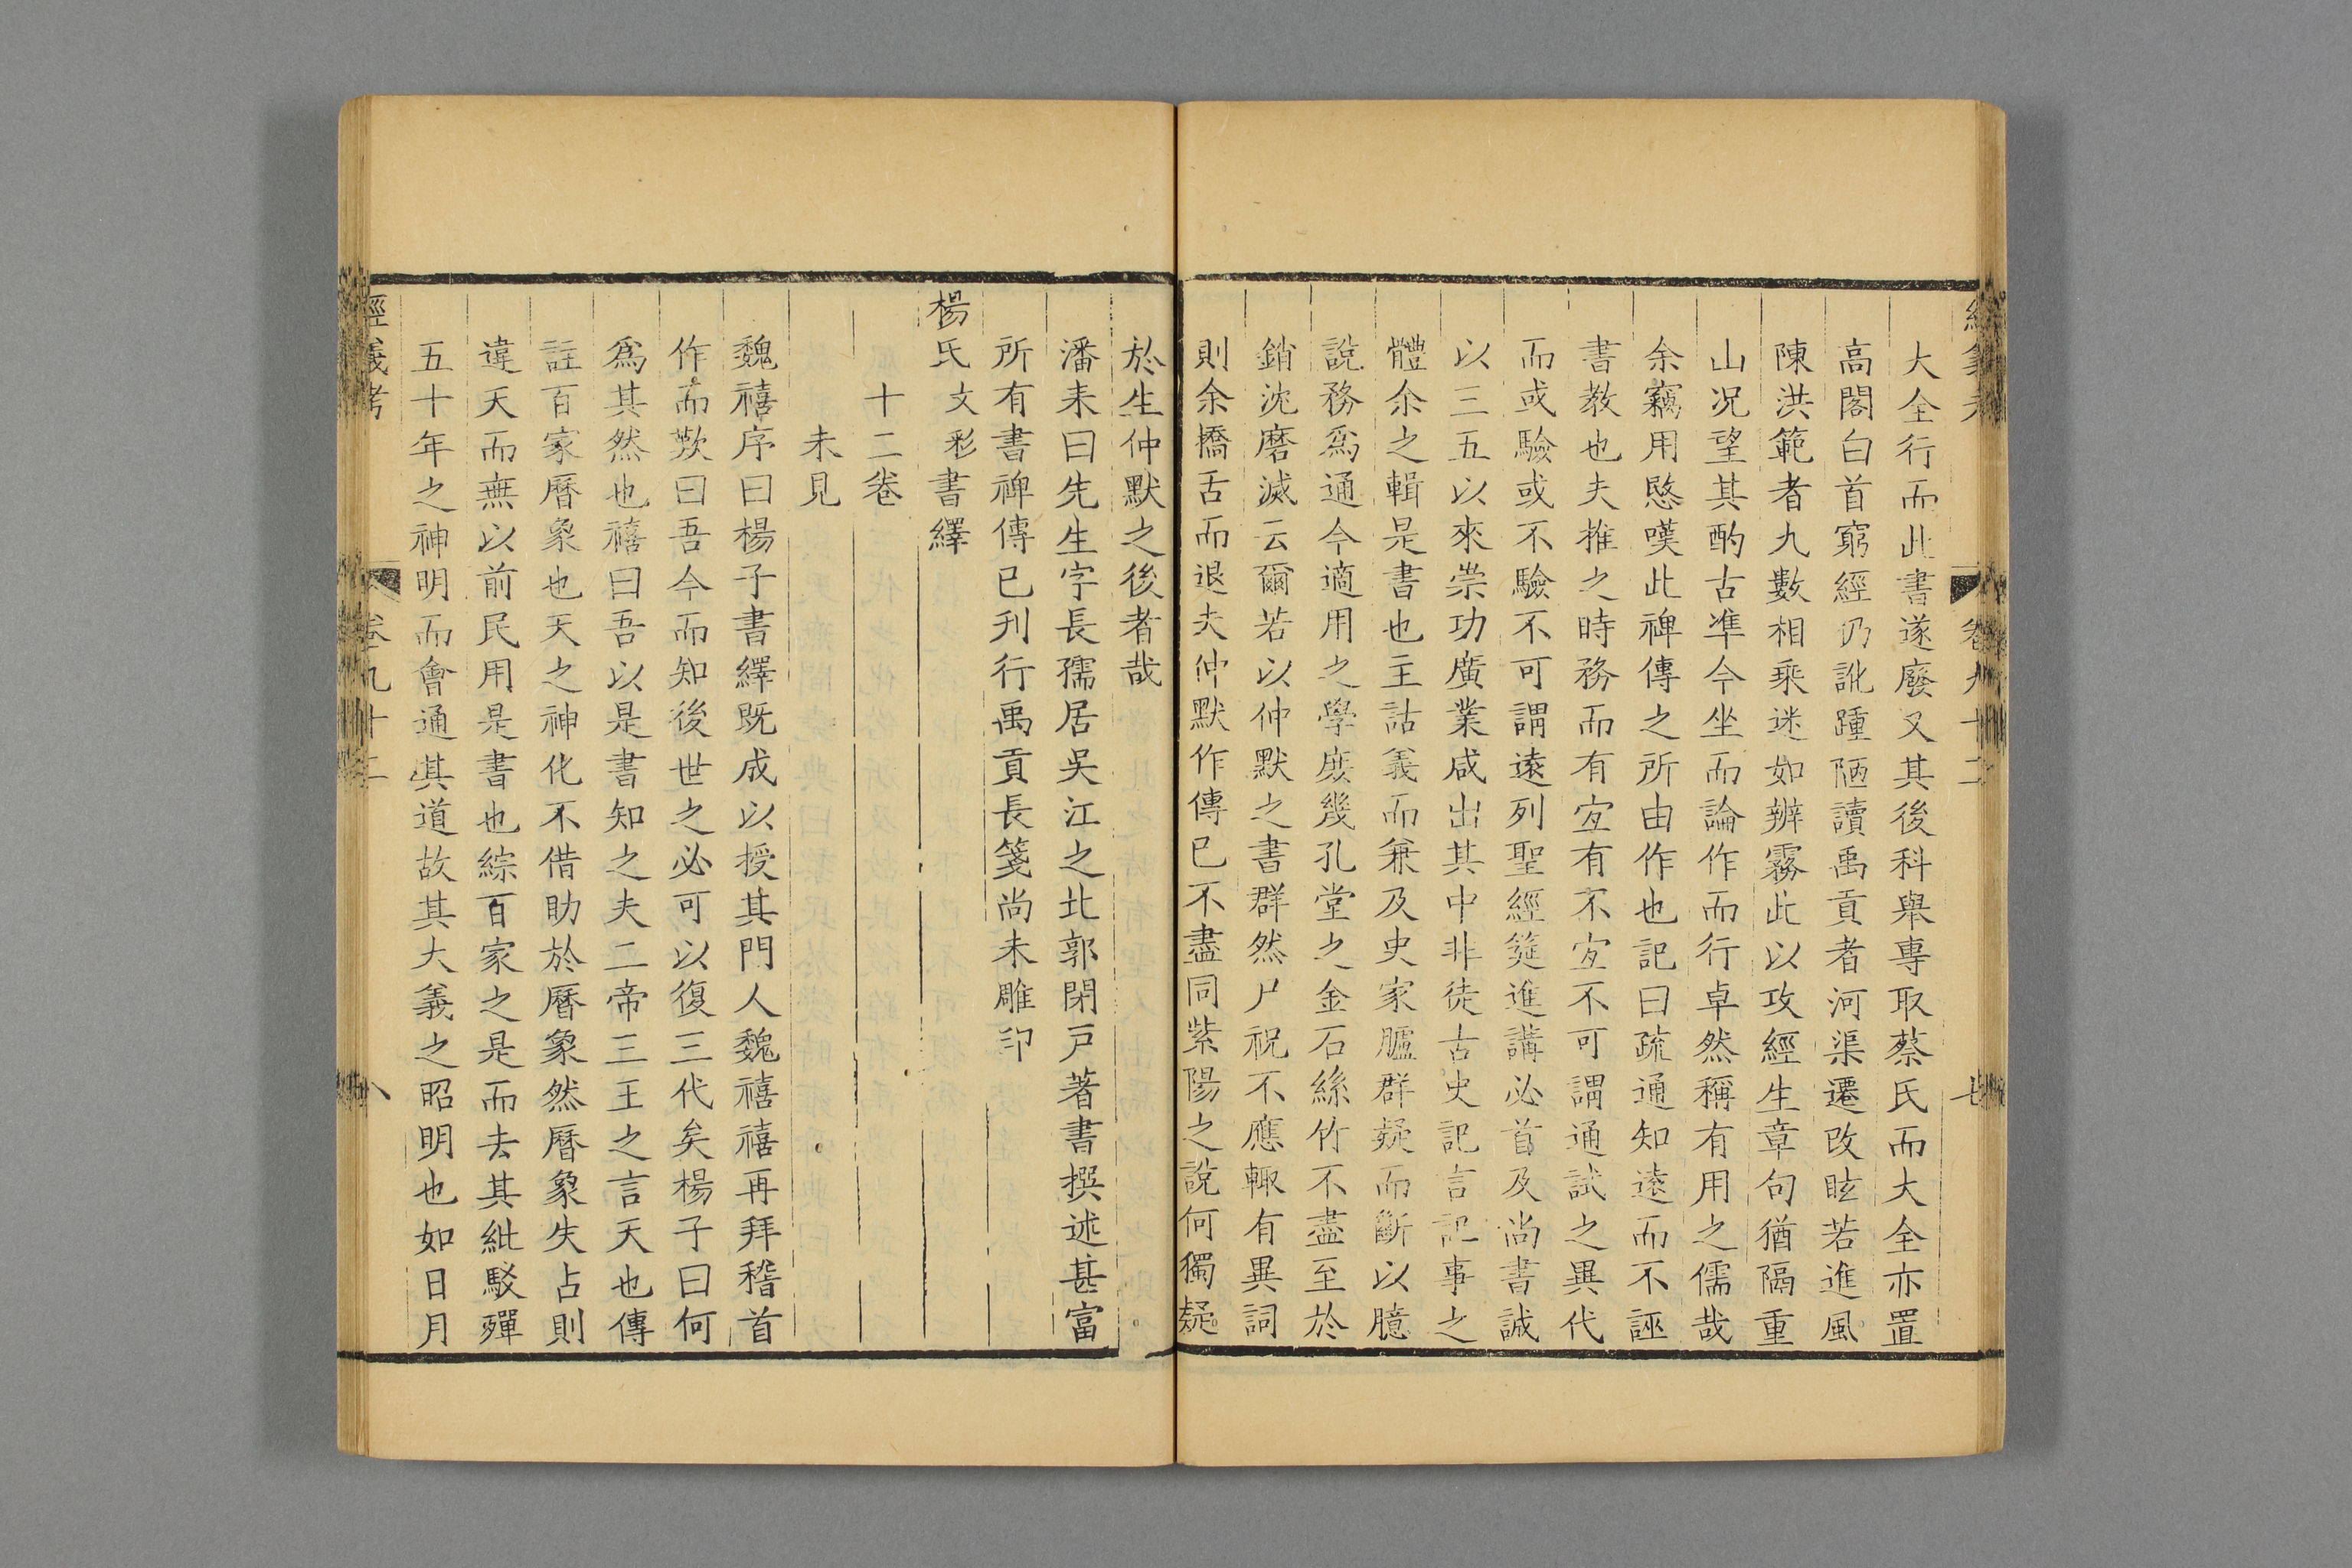 大全行而此書遂廢又其後科舉專取蔡氏而大全亦置
高閣白首窮經仍訛踵陋讀禹貢者河渠遷改眩若進風
陳洪範者九數相乘迷如辨霧此以攻經生章句猶隔重
山况望其酌古準今坐而論作而行卓然稱有用之儒哉
余竊用愍嘆此裨傳之所由作也記曰疏通知遠而不誣
書教也夫推之時務而有宜有不宜不可謂通試之異代
而或驗或不驗不可謂遠列聖經筵進講必首及尚書誠
以三五以來崇功廣業咸出其中非徒古史記言記事之
體余之輯是書也主詁義而兼及史家臚群疑而斷以臆
說務爲通今適用之學庻幾孔堂之金石絲竹不盡至於
銷沈磨滅云爾若以仲默之書群然尸祝不應輙有異詞
則余撟舌而退夫仲默作傳已不盡同紫陽之說何獨疑
於生仲默之後者哉
潘耒曰先生字長孺居吳江之北郭閉戸著書撰述甚富
所有書禆傳已刋行禹貢長箋尚未雕印
楊氏文彩書繹
十二卷
未見
魏禧序曰楊子書繹既成以授其門人魏禧禧再拜稽首
作而歎曰吾今而知後世之必可以復三代矣楊子曰何
爲其然也禧曰吾以是書知之夫二帝三王之言天也傳
註百家曆象也天之神化不借助於曆象然曆象失占則
違天而無以前民用是書也綜百家之是而去其紕駁殫
五十年之神明而會通其道故其大義之昭明也如日月
經義考 卷九十二 八